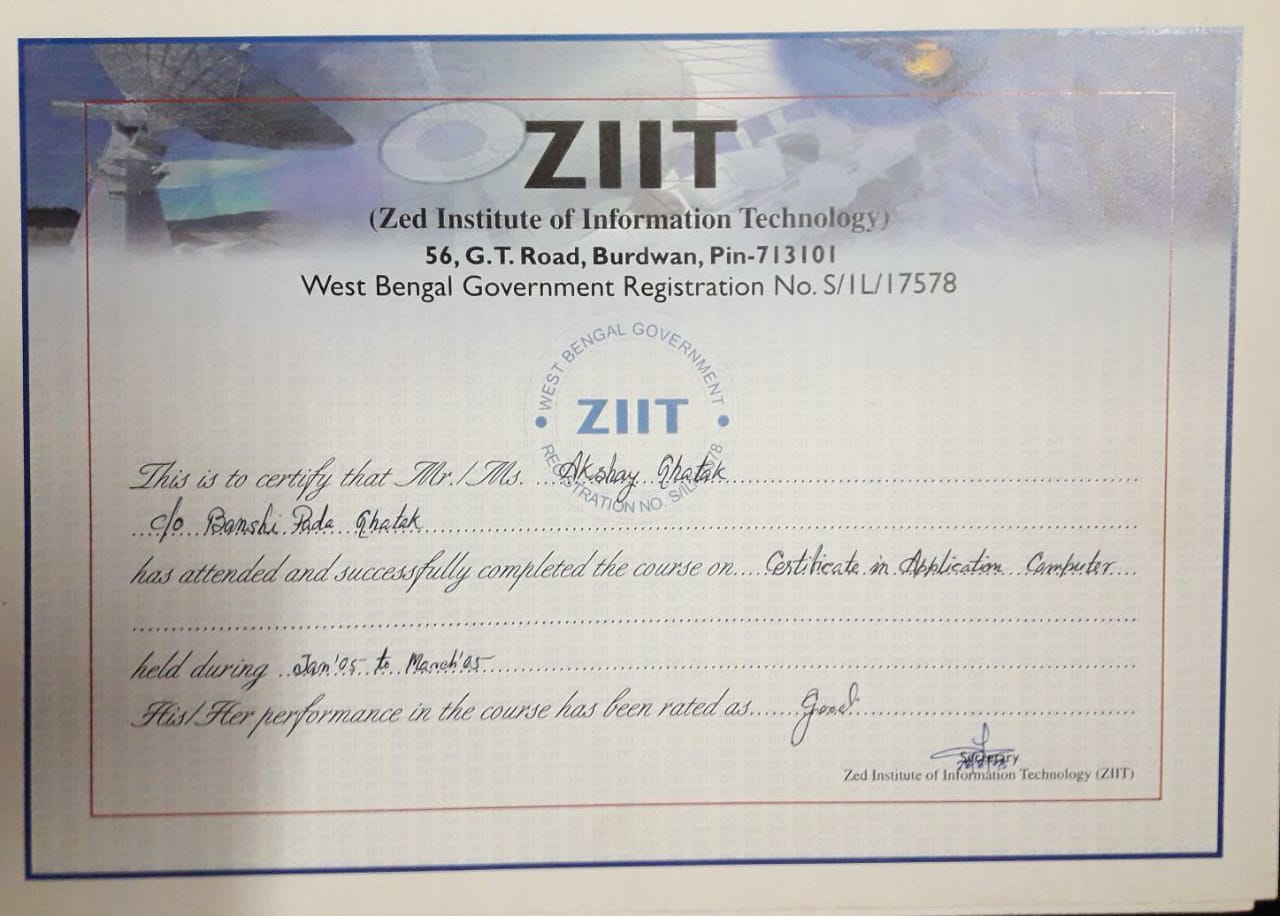 ZIIT
(Zed Institute of Information Technology)
56, G.T. Road, Burdwan, Pin-713101
West Bengal Government Registration No. S/1L/17578
WEST BENGAL GOVERNMENT
ZIIT
REGISTRATION NO. S/1L/17578
This is to certify that Mr./Ms. Akshay Ghatak
c/o Banshi Pada Ghatak
has attended and successfully completed the course on Certificate in Application Computer
held during Jan'05 to March'05
His/Her performance in the course has been rated as Good
Secretary
Zed Institute of Information Technology (ZIIT)